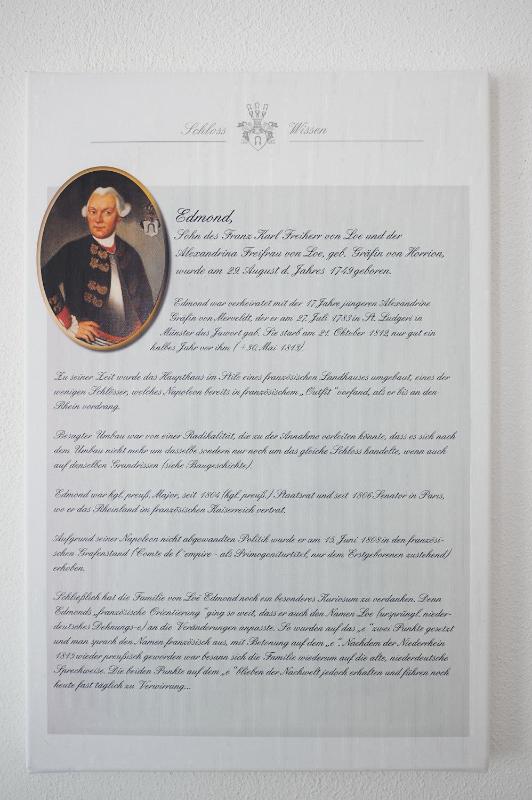 Schloss Wissen
Edmond,
Sohn des Franz Karl Freiherr von Loe und der
Alexandrina Freifrau von Loe, geb. Gräfin von Horrion,
wurde am 29. August d. Jahres 1749 geboren.
Edmond war verheiratet mit der 17 Jahre jüngeren Alexandrine
Gräfin von Merveldt, der er am 27. Juli 1783 in St. Ludgeri in
Münster das Jawort gab. Sie starb am 21. Oktober 1812, nur gut ein
halbes Jahr vor ihm (+30. Mai 1813).
Zu seiner Zeit wurde das Haupthaus im Stile eines französischen Landhauses umgebaut, eines der
wenigen Schlösser, welches Napoleon bereits in französischem „Outfit" vorfand, als er bis an den
Rhein vordrang.
Besagter Umbau war von einer Radikalität, die zu der Annahme verleiten könnte, dass es sich nach
dem Umbau nicht mehr um dasselbe sondern nur noch um das gleiche Schloss handelte, wenn auch
auf denselben Grundrissen (siehe Baugeschichte).
Edmond war kgl. preuß. Major, seit 1804 (kgl. preuß.) Staatsrat und seit 1806 Senator in Paris,
wo er das Rheinland im französischen Kaiserreich vertrat.
Aufgrund seiner Napoleon nicht abgewandten Politik wurde er am 15. Juni 1808 in den französi-
schen Grafenstand (Comte de l´empire - als Primogeniturtitel, nur dem Erstgeborenen zustehend)
erhoben.
Schließlich hat die Familie von Loë Edmond noch ein besonderes Kuriosum zu verdanken. Denn
Edmonds „französische Orientierung" ging so weit, dass er auch den Namen Loe (ursprüngl. nieder-
deutsches Dehnungs-e) an die Veränderungen anpasste. So wurden auf das „e" zwei Punkte gesetzt
und man sprach den Namen französisch aus, mit Betonung auf dem „e". Nachdem der Niederrhein
1815 wieder preußisch geworden war besann sich die Familie wiederum auf die alte, niederdeutsche
Sprechweise. Die beiden Punkte auf dem „e" blieben der Nachwelt jedoch erhalten und führen noch
heute fast täglich zu Verwirrung...